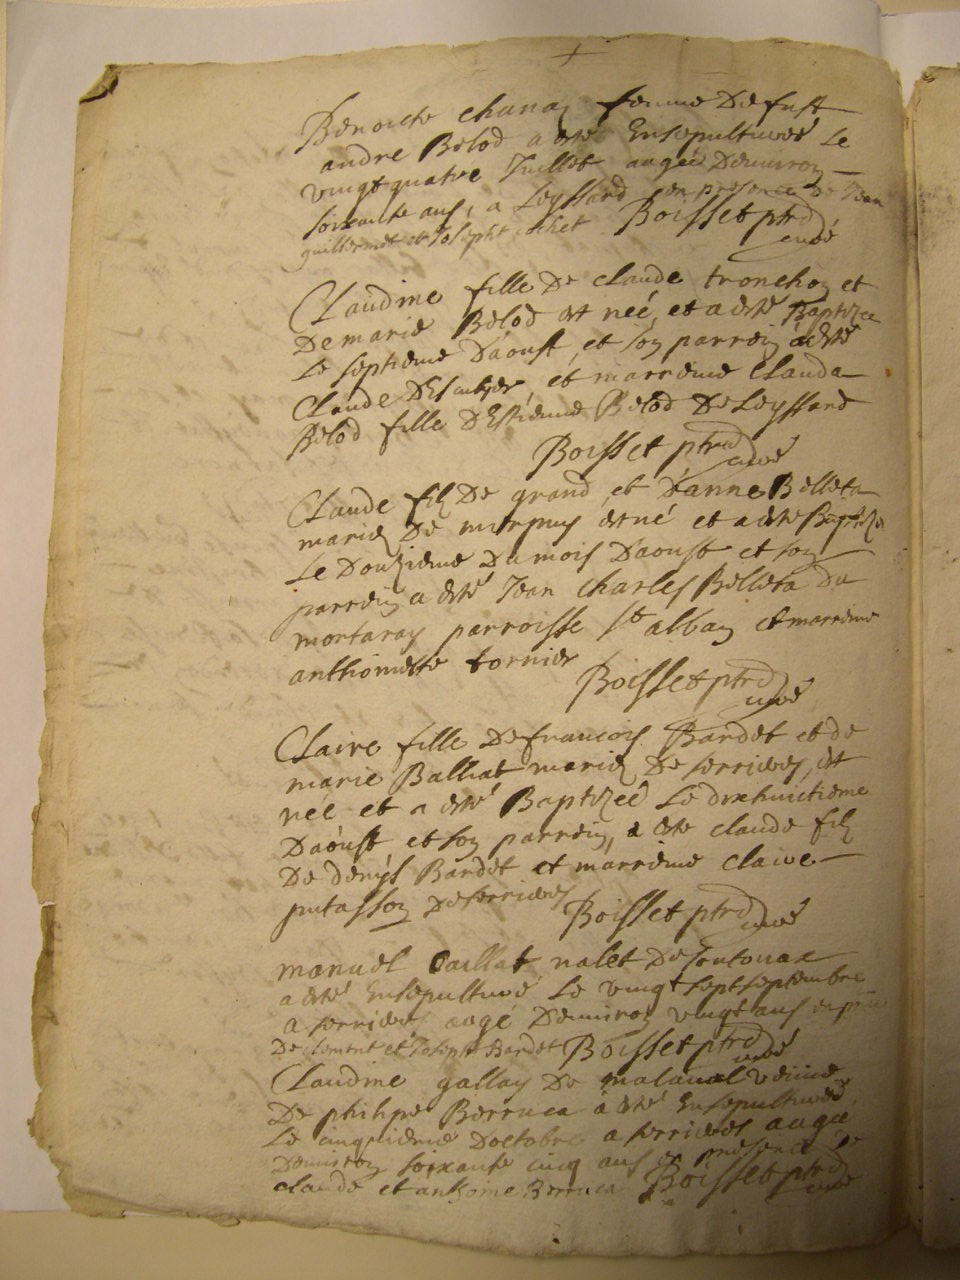 Benoiste chanay femme De fust
andre Belod a esté Ensepulturéé Le
vingt quatre Juillet augéé Denuiron
soixante ans, a Leyssard en presence de Jean
guillermet et Joseph cochet Boisset ptrd
curé
Claudine fille De claude tronchon et
De marie Belod est néé, et a esté Baptizee
Le septieme D'aoust, et son parrein a esté
Claude et marreine Clauda
Belod fille D'Estienne Belod De Leyssard
Boisset ptrd
curé
Claude fils De grand et D'anne Belleta
mariez De est né et a esté Baptizé
Le Douzieme Du mois D'aoust et son
parrein a esté Jean Charles Belleta Du
mortaray parroisse st alban et marreine
anthoinette tornier
Boisset ptrd
curé
Claire fille De francois Bardet et de
marie Balliat mariez De serrieres, est
néé et a esté Baptizéé Le dixhuictieme
D'aóust et son parrein, a este claude fils
De denÿs Bardet et marreine claire
putasson De serrieres
Boisset ptrd curé
manuel Caillat valet De
a esté Ensepulturé Le vingt sept septembre
a serrieres augé Denuiron vingt ans en
De clement et Joseph Bardet Boisset ptrd
curé
Claudine gallay De malaval veuue
De philipe Berruca a esté Ensepulturéé
Le cinquieme D'octobre a serrieres augéé
Denuiron soixante cinq ans en presence De
claude et anthoine Berruca Boisset ptrd
curé